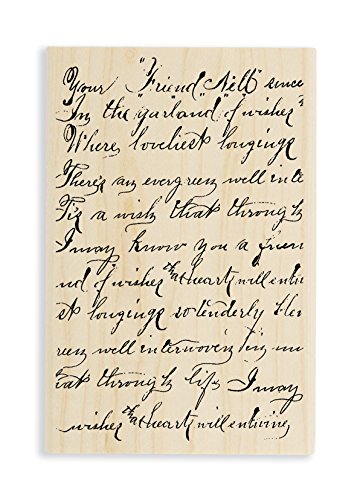 Your "Friend" "Nell" since
In the "garland" of wishes"
Where loveliest longings
There's an evergreen well inte
Tis a wish that through
I may know you a frien
nd of wishes that hearts will entwi
st longings so tenderly ble
reen well interwoven tis un
hat through life I may
wishes that hearts will entwine